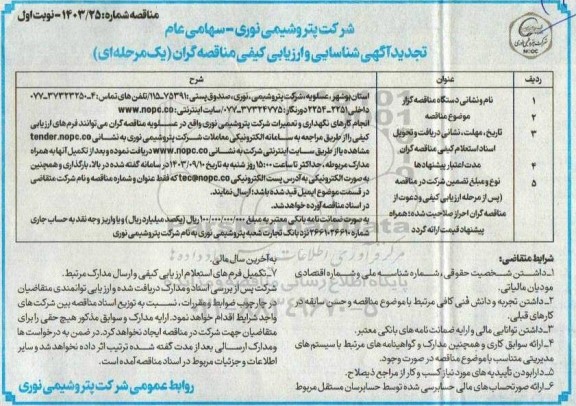 مناقصه شماره: ۱۴۰۳/۲۵ - نوبت اول
شرکت پتروشیمی نوری - سهامی عام
تجدید آگهی شناسایی و ارزیابی کیفی مناقصه گران (یک مرحله‌ای)
NOPC
ردیف
عنوان
شرح
۱
نام و نشانی دستگاه مناقصه گزار
استان بوشهر، عسلویه، شرکت پتروشیمی نوری، صندوق پستی: ۷۵۳۹۱-۱۱۵ / تلفن های تماس: ۴-۳۷۳۲۳۲۵۰-۰۷۷
داخلی ۲۲۵۱-۲۲۵۴ دورنگار: ۳۷۳۲۴۷۷۵-۰۷۷ / سایت اینترنتی: www.nopc.co
۲
موضوع مناقصه
انجام کارهای نگهداری و تعمیرات شرکت پتروشیمی نوری واقع در عسلویه
۳
تاریخ، مهلت، نشانی دریافت و تحویل
اسناد استعلام کیفی مناقصه گران
مناقصه گران می‌توانند فرم‌های ارزیابی
کیفی را از طریق مراجعه به سامانه الکترونیکی معاملات شرکت پتروشیمی نوری به نشانی tender.nopc.co
مشاهده یا از طریق سایت اینترنتی شرکت به نشانی www.nopc.co دریافت نموده و بعد از تکمیل آنها به همراه
مدارک مربوطه، حداکثر تا ساعت ۱۵:۰۰ روز شنبه به تاریخ ۱۴۰۳/۰۹/۱۰ در سامانه گفته شده در بالا، بارگذاری و همچنین
به صورت الکترونیکی به آدرس پست الکترونیکی tec@nopc.co که فقط عنوان و شماره مناقصه و نام شرکت متقاضی
در قسمت موضوع ایمیل قید شده باشد؛ ارسال نمایند.
۴
مدت اعتبار پیشنهادها
در اسناد مناقصه آورده خواهد شد.
۵
نوع و مبلغ تضمین شرکت در مناقصه
(پس از مرحله ارزیابی کیفی و دعوت از
مناقصه گران احراز صلاحیت شده؛ همراه
پیشنهاد قیمت ارائه گردد
به صورت ضمانت نامه بانکی معتبر به مبلغ ۱۰۰/۰۰۰/۰۰۰/۰۰۰ ریال (یکصد میلیارد ریال) و یا واریز وجه نقد به حساب جاری
نزد بانک تجارت شعبه پتروشیمی نوری به نام شرکت پتروشیمی نوری
شرایط متقاضی:
۱-داشتن شخصیت حقوقی، شماره شناسه ملی و شماره اقتصادی
مودیان مالیاتی.
۲-داشتن تجربه و دانش فنی کافی مرتبط با موضوع مناقصه و حسن سابقه در
کارهای قبلی.
۳-داشتن توانایی مالی و ارایه ضمانت نامه های بانکی معتبر.
۴-ارائه سوابق کاری و همچنین مدارک و گواهینامه های مرتبط با سیستم های
مدیریتی متناسب با موضوع مناقصه در صورت وجود.
۵-دارا بودن تأییدیه های مورد نیاز کسب و کار از مراجع ذیصلاح.
۶-ارائه صورتحساب های مالی حسابرسی شده توسط حسابرسان مستقل مربوط
به آخرین سال مالی.
۷-تکمیل فرم های استعلام ارزیابی کیفی و ارسال مدارک مرتبط.
شرکت پس از بررسی اسناد و مدارک دریافت شده و ارزیابی توانمندی متقاضیان
در چارچوب ضوابط و مقررات، نسبت به توزیع اسناد مناقصه بین شرکت های
واجد شرایط اقدام خواهد نمود. ارایه مدارک و سوابق مذکور هیچ حقی را برای
متقاضیان جهت شرکت در مناقصه ایجاد نخواهد کرد. در ضمن به درخواست ها
و مدارک ارسالی بعد از مدت گفته شده ترتیب اثر داده نخواهد شد و سایر
اطلاعات و جزئیات مربوط در اسناد مناقصه آمده است.
روابط عمومی شرکت پتروشیمی نوری